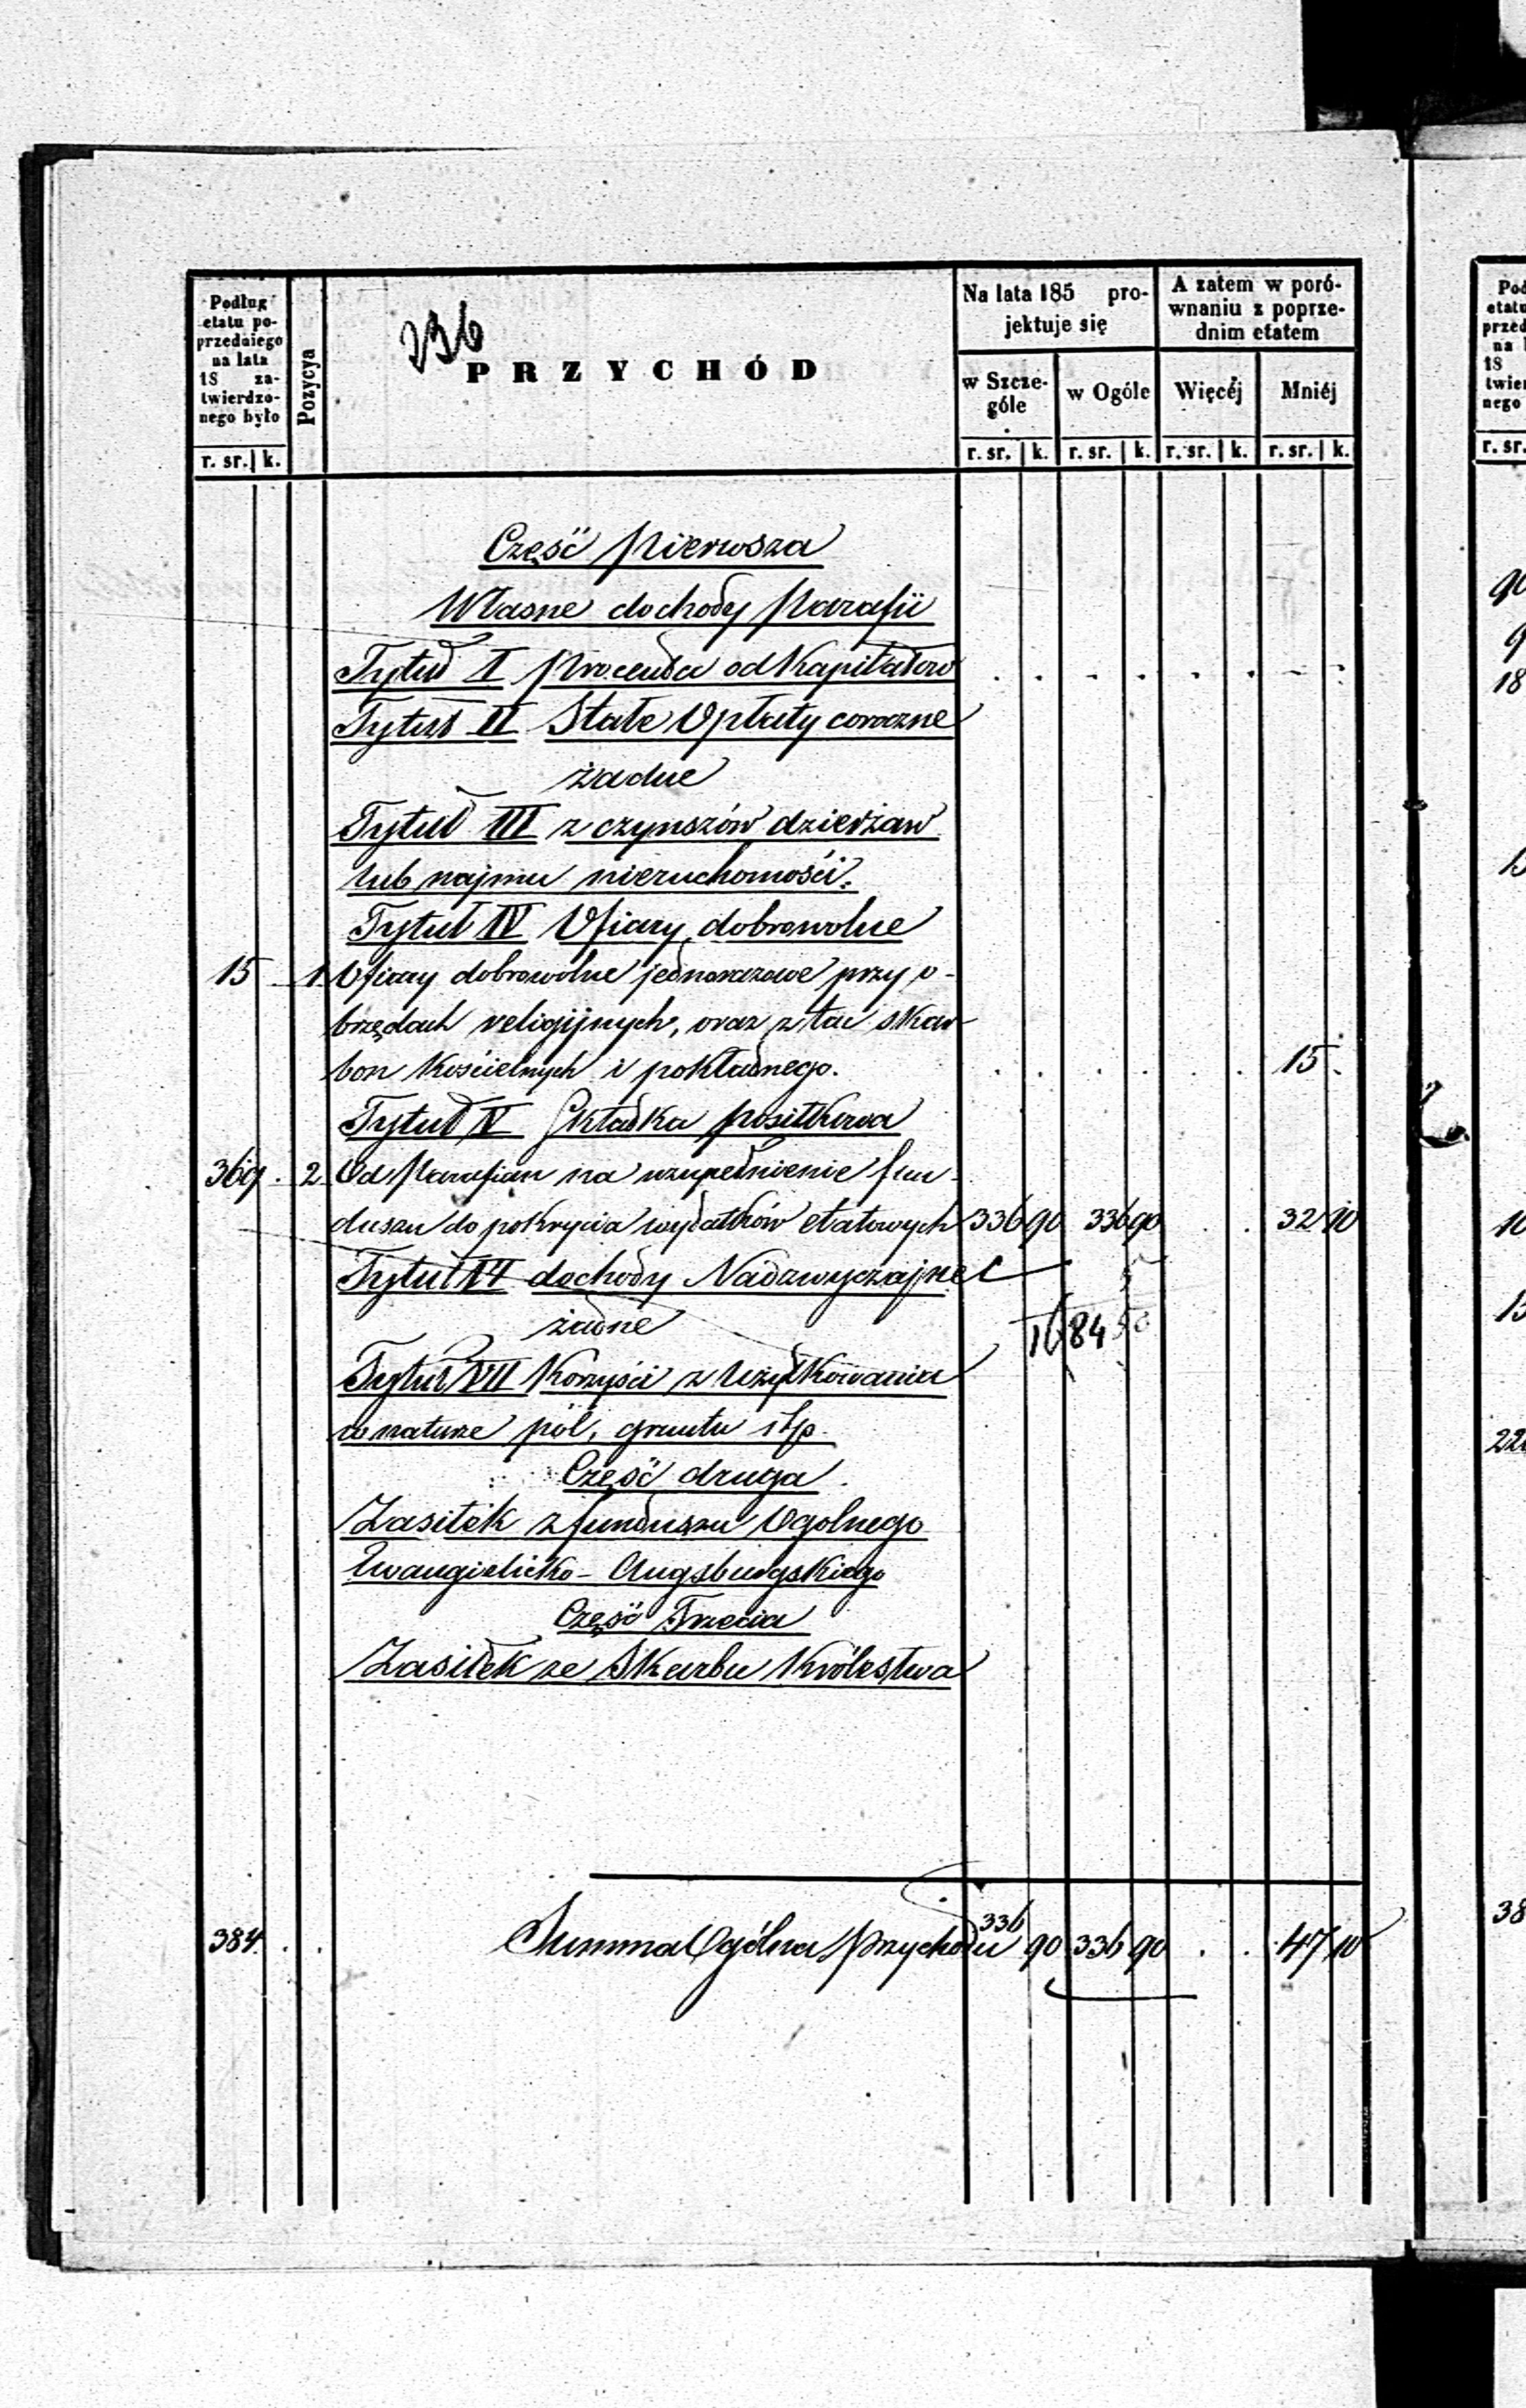 236
Podług
etatu po-
przedniego
na lata
18 za-
twierdzo-
nego było
Pozycya
PRZYCHÓD
Na lata 185 pro-
jektuje się
A zatem w poró-
wnaniu z poprze-
dnim etatem
w Szcze-
góle
w Ogóle
Więcéj
Mniéj
r. sr. k.
r. sr. k. r. sr. k. r. sr. k. r. sr. k.
Część Pierwsza
Własne dochody Parafii
Tytuł I Procenta od Kapitałów
Tytuł II Stałe Opłaty coroczne
żadne
Tytuł III z czynszów dzierżaw
lub najmu nieruchomości.
Tytuł IV Ofiary dobrowolne
15 1 Ofiary dobrowolne jednorazowe przy o-
brzędach religijnych, oraz z tac skar-
bon Kościelnych i pokładnego. 15
Tytuł V Składka posiłkowa
369 2 Od Parafian na uzupełnienie fun-
duszu do pokrycia wydatków etatowych 336 90 336 90 32 10
Tytuł VI dochody Nadzwyczajne
żadne
84
Tytuł VII Korzyści z Użytkowania
w naturze pól, gruntu itp.
Część druga
Zasiłek z funduszu Ogolnego
Ewangielicko-Augsburgskiego
Część Trzecia
Zasiłek ze Skarbu Królestwa
384 Summa Ogólna Przychodu 336 90 336 90 47 10
Pod
etatu
przed
na l
18
twier
nego
r. sr.
18
10
38